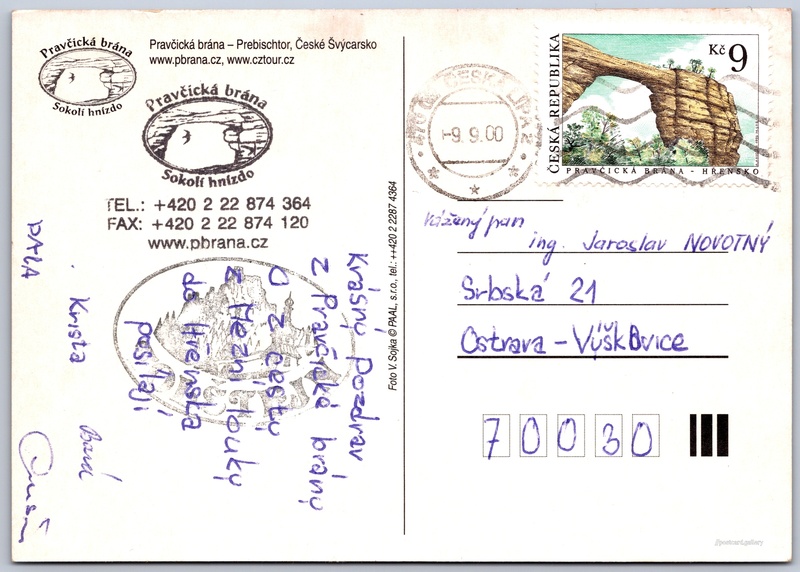 Pravčická brána
Sokolí hnízdo
Pravčická brána – Prebischtor, České Švýcarsko
www.pbrana.cz, www.cztour.cz
Pravčická brána
Sokolí hnízdo
TEL.: +420 2 22 874 364
FAX: +420 2 22 874 120
www.pbrana.cz
Krásný pozdrav
z Pravčické brány
a z cesty
z Mezní louky
do Hřenska
posílají
PAŤA
Krista
Foto V. Sojka © PAAL, s.r.o., tel.: ++420 2 2287 4364
ČESKÁ LÍPA 2
-9. 9. 00
ČESKÁ REPUBLIKA
Kč 9
PRAVČICKÁ BRÁNA - HŘENSKO
Vážený pan
ing. Jaroslav NOVOTNÝ
Srbská 21
Ostrava - Výškovice
70030